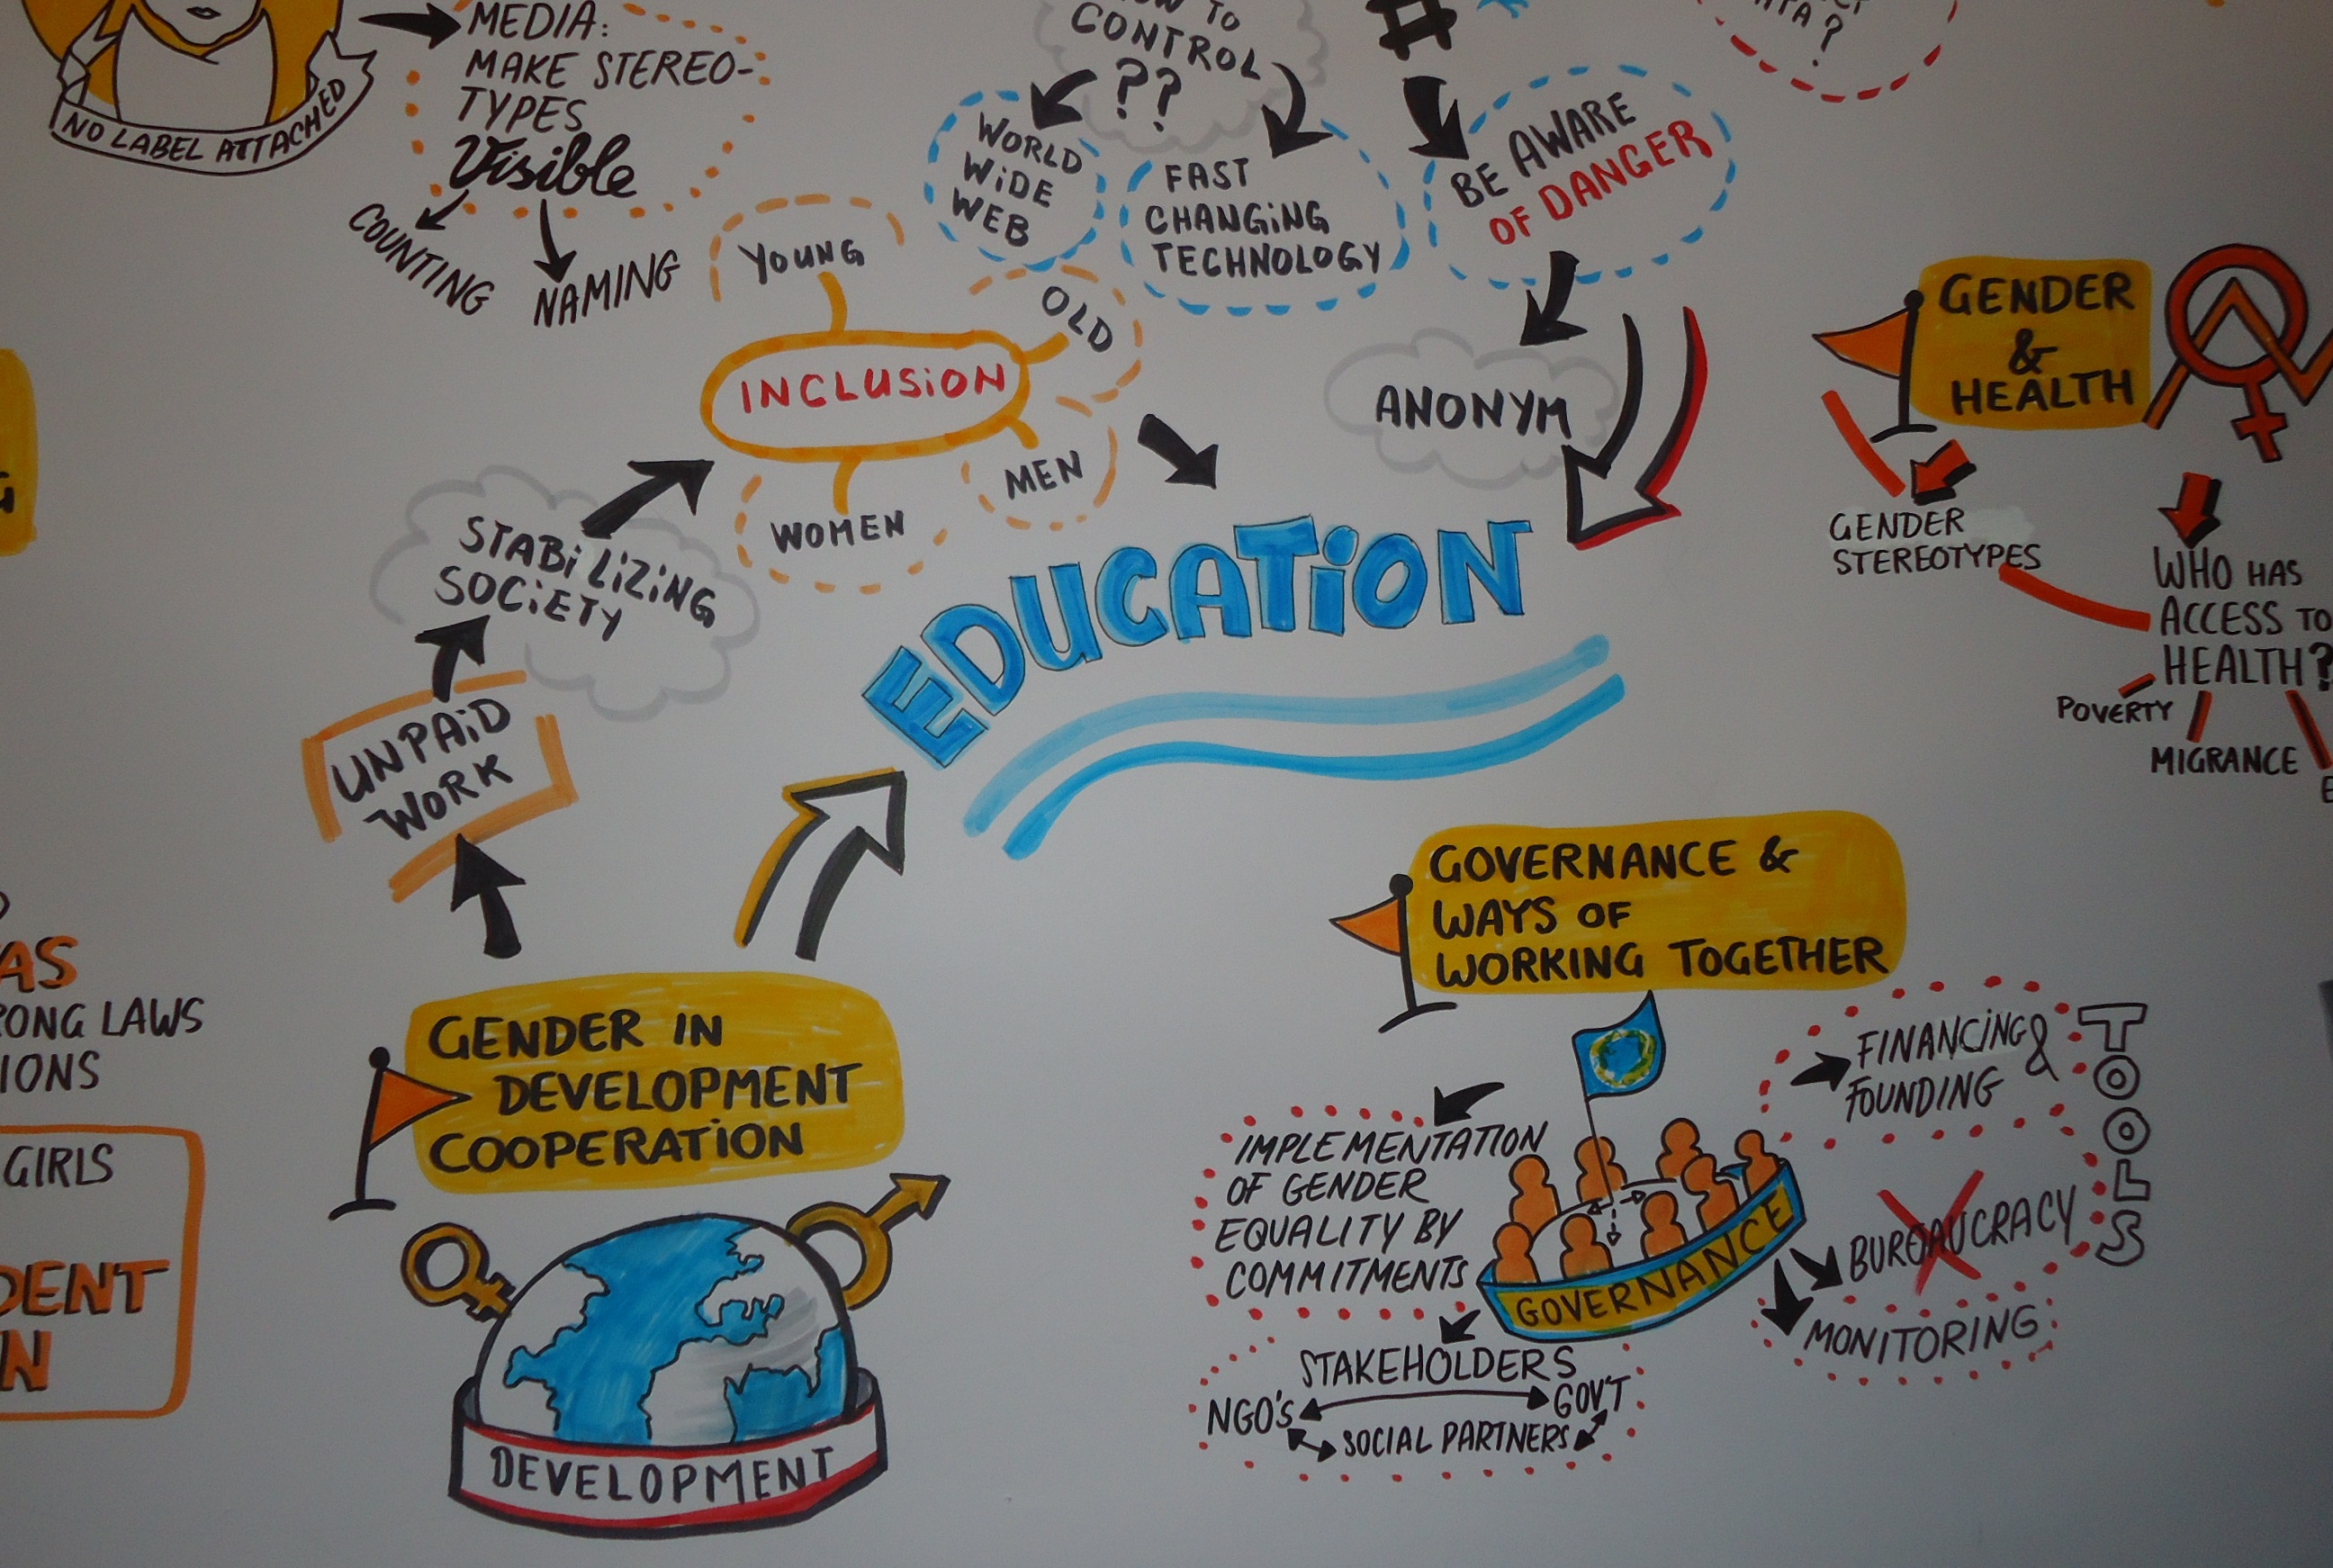 MEDIA:
MAKE STEREO-
TYPES
Visible
COUNTING
NAMING
NO LABEL ATTACHED
TO
CONTROL
??
WORLD
WIDE
WEB
FAST
CHANGING
TECHNOLOGY
#
BE AWARE
OF DANGER
ANONYM
YOUNG
OLD
INCLUSION
MEN
WOMEN
STABILIZING
SOCIETY
UNPAID
WORK
EDUCATION
GENDER
&
HEALTH
GENDER
STEREOTYPES
WHO HAS
ACCESS TO
HEALTH?
POVERTY
MIGRANCE
GENDER IN
DEVELOPMENT
COOPERATION
DEVELOPMENT
GOVERNANCE &
WAYS OF
WORKING TOGETHER
IMPLEMENTATION
OF GENDER
EQUALITY BY
COMMITMENTS
GOVERNANCE
STAKEHOLDERS
NGO'S GOV'T
SOCIAL PARTNERS
FINANCING &
FOUNDING
TOOLS
BUREAUCRACY
MONITORING
LAWS
GIRLS